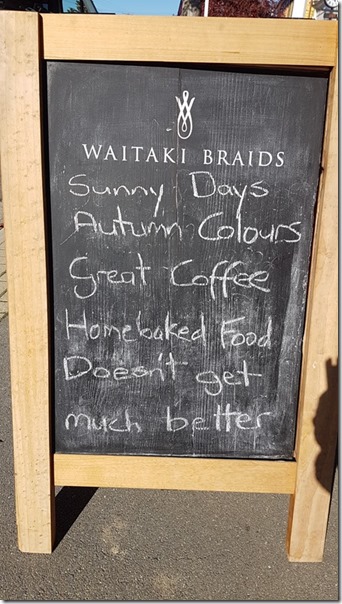 WAITAKI BRAIDS
Sunny Days
Autumn Colours
Great Coffee
Homebaked Food
Doesn't get
much better